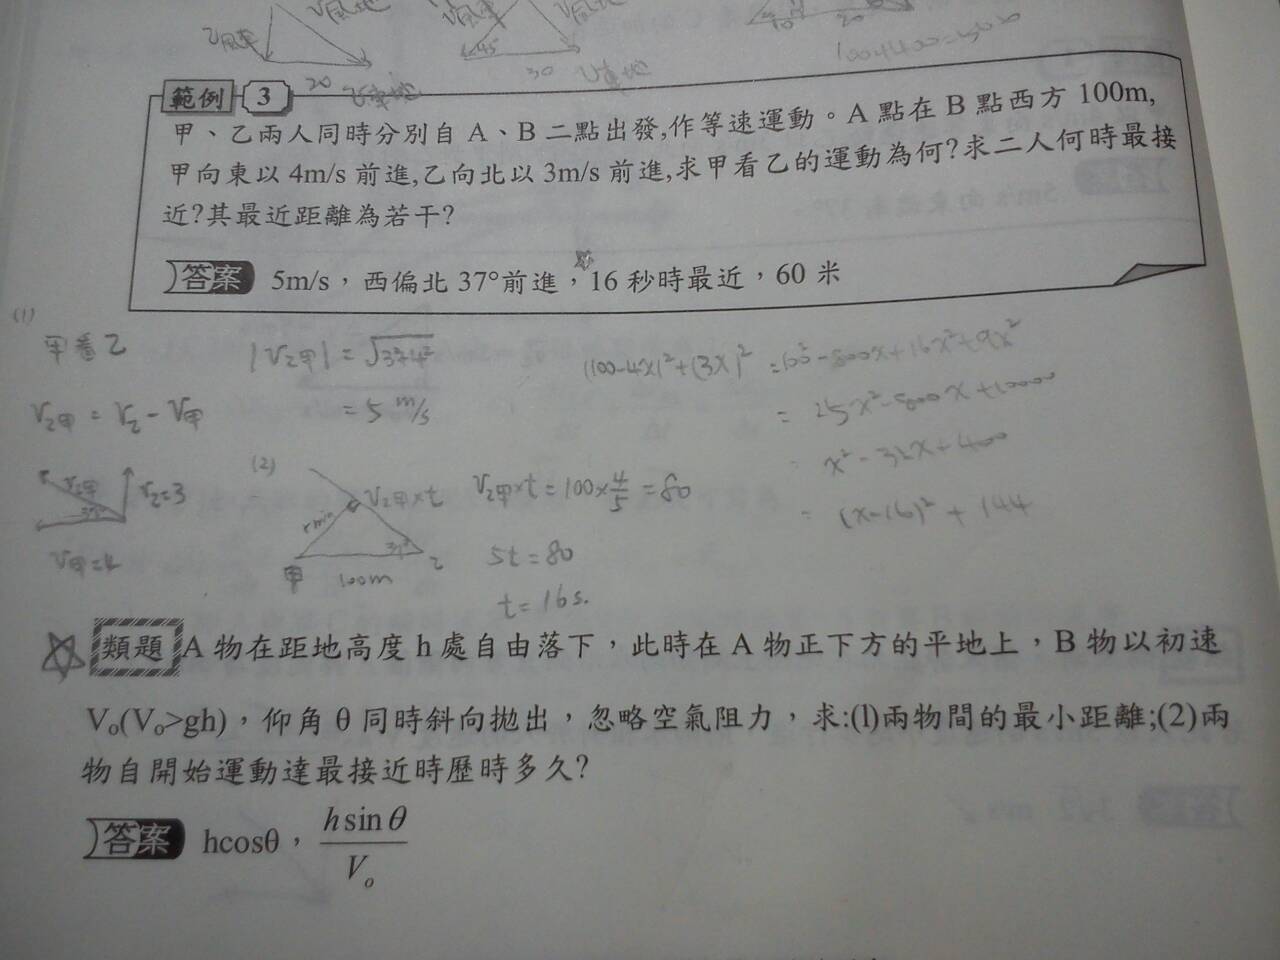 V風地
V風車
V風地
乙風車
45°
20
30
V車地
20
範例 3
甲、乙兩人同時分別自 A、B 二點出發,作等速運動。A 點在 B 點西方 100m,
甲向東以 4m/s 前進,乙向北以 3m/s 前進,求甲看乙的運動為何?求二人何時最接
近?其最近距離為若干?
答案 5m/s,西偏北 37°前進,16 秒時最近,60 米
(1)
甲看乙 |V乙甲| = √3²+4²
(100-4x)²+(3x)² =100²-800x+16x²+9x²
V乙甲 = V乙 - V甲
= 5 m/s
= 25x²-800x+10000
x²-32x+400
V乙甲
V乙=3
V甲=4
(2)
V乙甲×t
rmin
37°
甲 100m 乙
V乙甲×t = 100×4/5 = 80
(x-16)² + 144
5t = 80
t = 16s.
類題 A 物在距地高度 h 處自由落下,此時在 A 物正下方的平地上,B 物以初速
Vo(Vo>gh),仰角 θ 同時斜向拋出,忽略空氣阻力,求:(1)兩物間的最小距離;(2)兩
物自開始運動達最接近時歷時多久?
答案 hcosθ, h sin θ / Vo